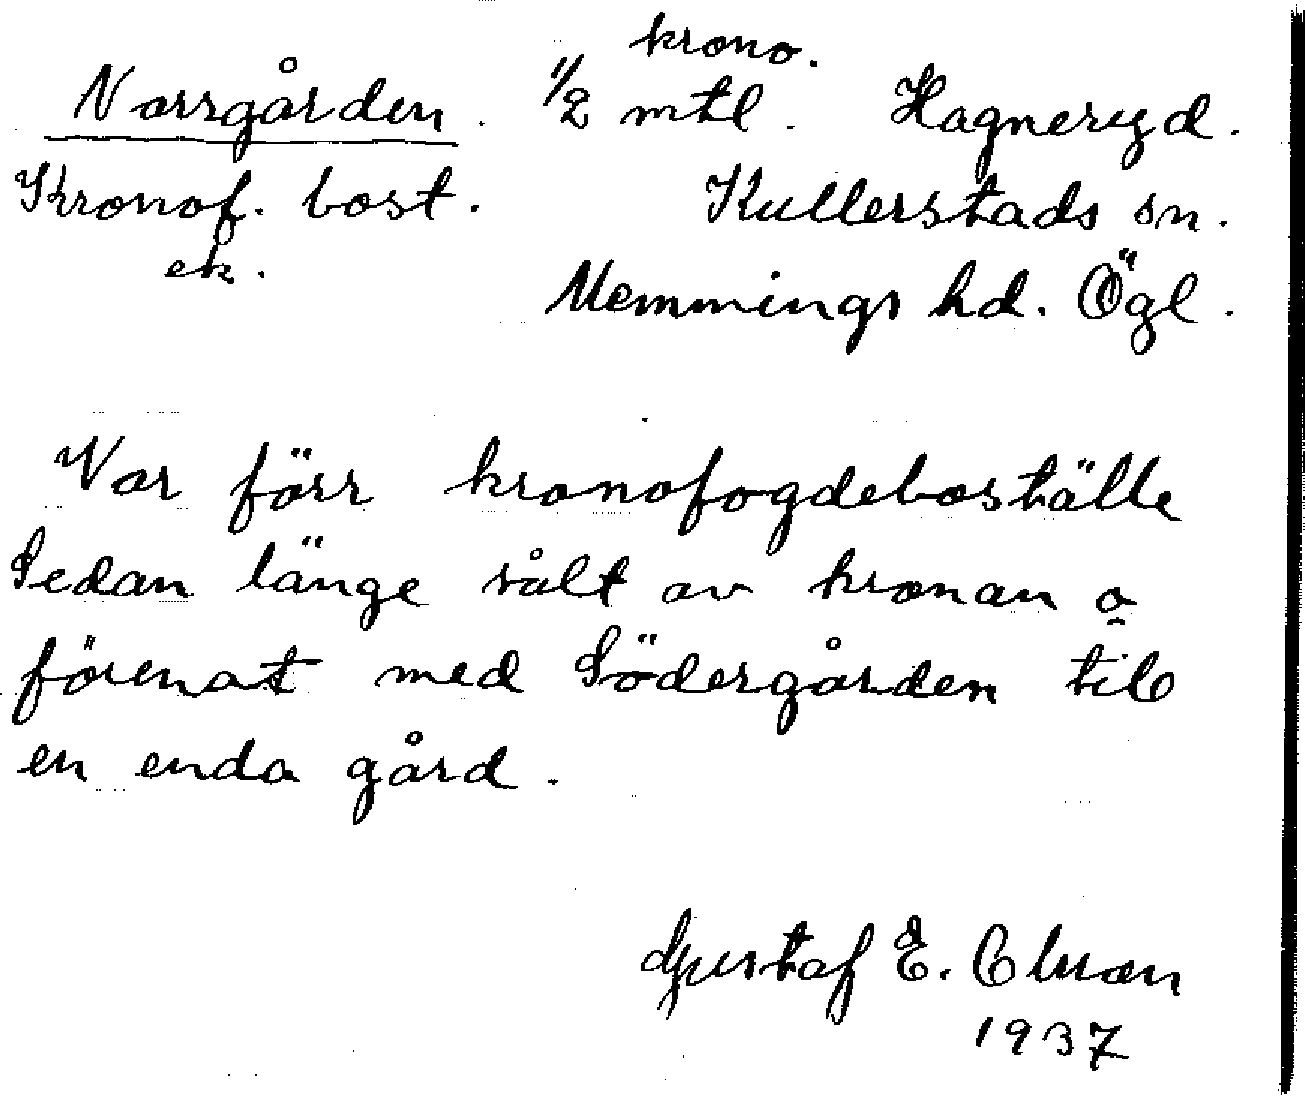 krono.
Norrgården. 1/2 mtl. Hagneryd.
Kronof. bost. Kullerstads sn.
ek.
Memmings hd. Ögl.
Var förr kronofogdeboställe
Sedan länge sålt av kronan o
förenat med Södergården till
en enda gård.
Gustaf E.
1937